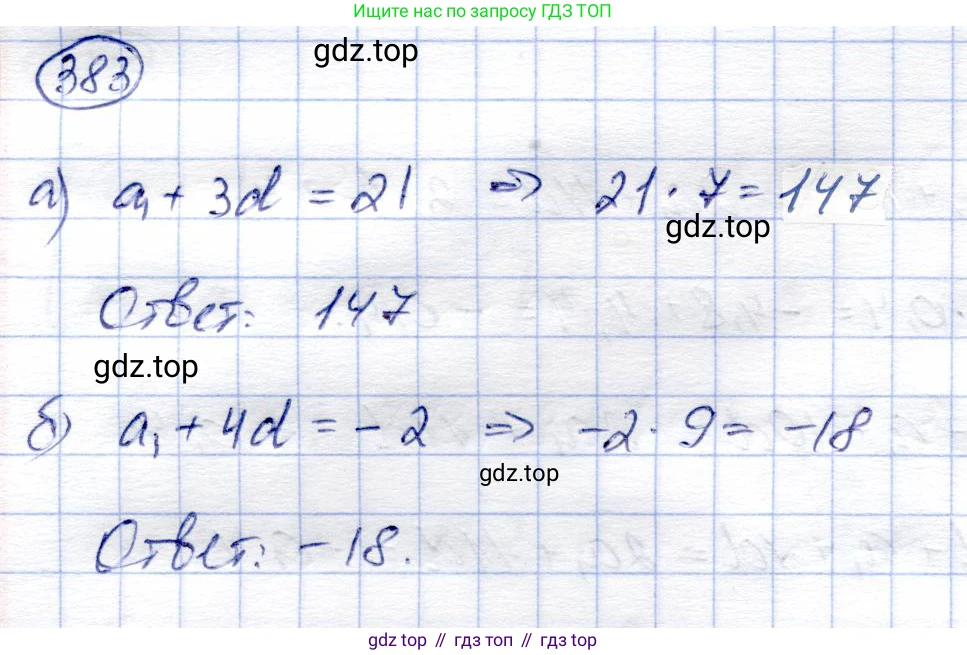 Ищите нас по запросу ГДЗ ТОП
383
gdz.top
а) a₁ + 3d = 21 ⇒ 21 · 7 = 147
gdz.top
Ответ: 147
gdz.top
б) a₁ + 4d = -2 ⇒ -2 · 9 = -18
gdz.top
Ответ: -18.
gdz top // гдз топ // gdz top